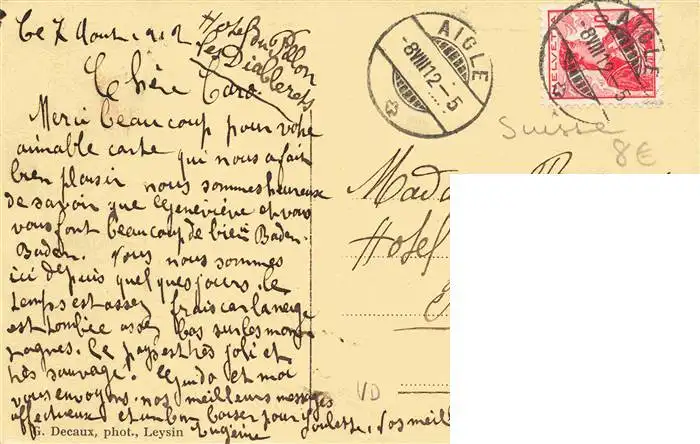 Ce 7 Aout 1912
Hotel
du Pillon
Les Diablerets
Chère Caro.
Merci beaucoup pour votre
aimable carte qui nous a fait
bien plaisir nous sommes heureux
de savoir que Geneviève et vous
vous font beaucoup de bien Baden-
Baden. Nous nous sommes
ici depuis quelques jours. le
temps est assez frais car la neige
est tombée assez bas sur les mon
tagnes. Le pays est très joli et
très sauvage. Guido et moi
vous envoyons nos meilleurs messages
affectueux et un bon baiser pour
Eugénie
vos meill
G. Decaux, phot., Leysin
AIGLE
-8.VIII.12.-5
HELVETIA
10
AIGLE
-8.VIII.12.-5
Suisse
8€
Mada
Hotel
VD